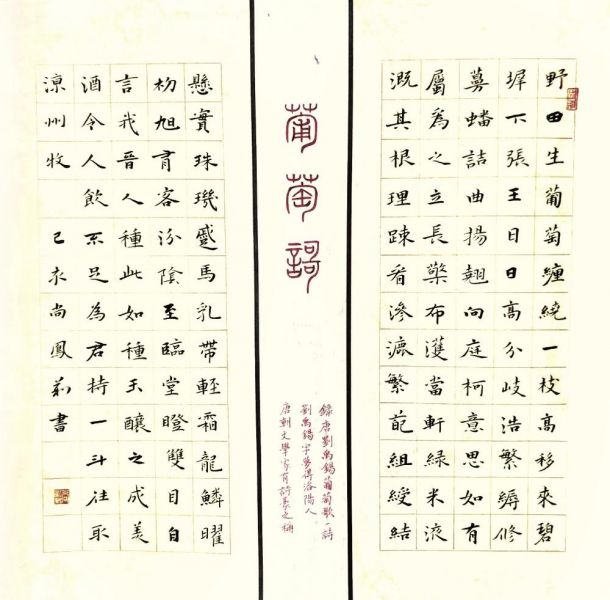 野田生葡萄纏繞一枝高移來碧
墀下張王日日高分岐浩繁縟修
蔓蟠詰曲揚翹向庭柯意思如有
屬為之立長檠布濩當軒綠米液
溉其根理疎看滲漉繁葩組綬結
葡萄謌
錄唐劉禹錫葡萄歌一詩
劉禹錫字夢得洛陽人
唐朝文學家有詩豪之稱
懸實珠璣蹙馬乳帶輕霜龍鱗曜
初旭有客汾陰至臨堂瞪雙目自
言我晉人種此如種玉釀之成美
酒令人飲不足為君持一斗往取
涼州牧 己亥尚鳳莉書